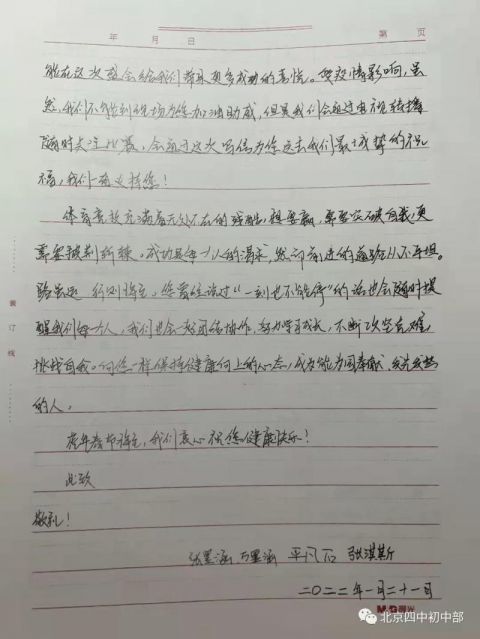 年 月 日 第 页
能在这次盛会给我们带来更多成功的喜悦。受疫情影响,虽
然,我们不能到现场为您加油助威,但是我们会通过电视转播
随时关注比赛,会通过这次写信为您送去我们最诚挚的祝
福,我们 您!
体育竞技充满着无处不在的残酷,想要赢,需要突破自我,更
需要披荆斩棘。成功是每一个人的渴求,然而前进的道路从不平坦。
路虽远 行则将至,您曾经说过“一刻也不能停”的话也会随时提
醒我们每一人,我们也会 团结协作,努力学习成长,不断攻坚克难,
挑战自我。向您一样保持健康向上的心态,成为能为国奉献、发光发热
的人。
虎年春节将至,我们衷心祝您健康快乐!
此致
敬礼!
张墨涵 万墨涵 张淇斯
二〇二二年一月二十一日
装订线
M&G晨光
北京四中初中部